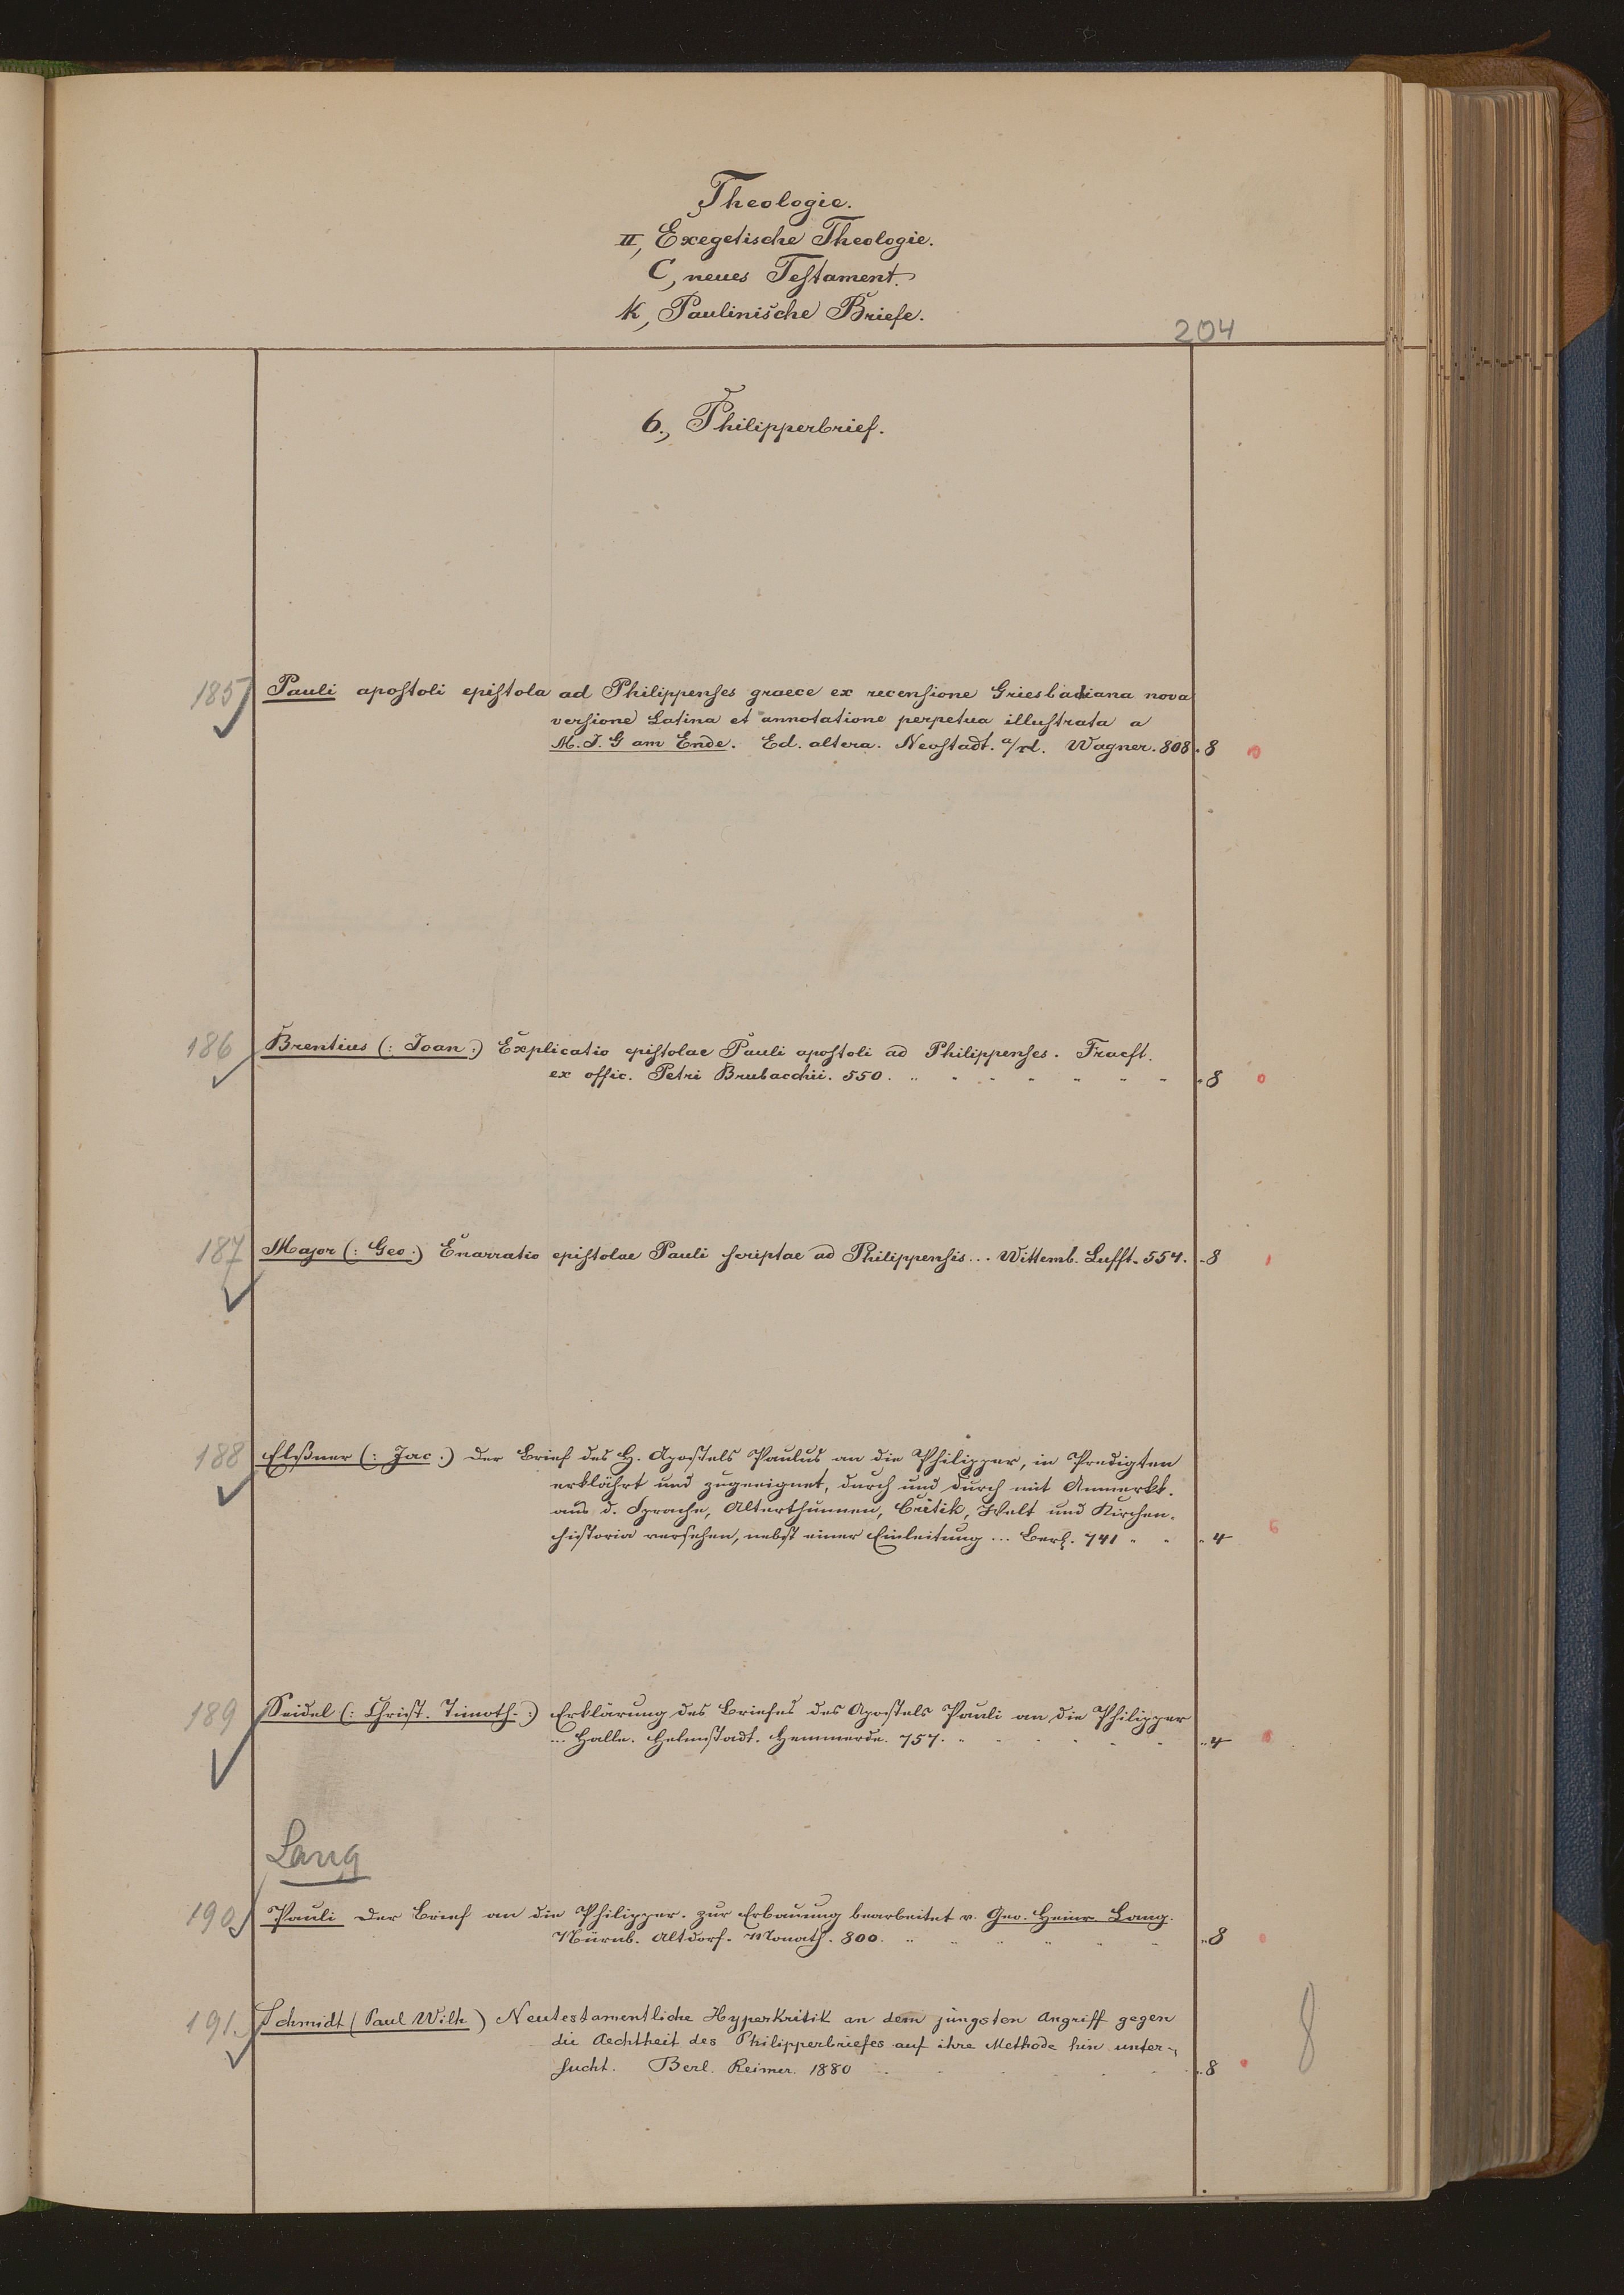 Theologie.
II, Exegetische Theologie.
C, neues Testament.
k, Paulinische Briefe.
204
6., Philipperbrief.
185 Pauli apostoli epistola ad Philippenses graece ex recensione Griesbachiana nova
versione Latina et annotatione perpetua illustrata a
M. J. G am Ende. Ed. altera. Neostadt. a/d. Wagner. 808. 8 0
186 Brentius (: Joan :) Explicatio epistolae Pauli apostoli ad Philippenses. Fracft.
ex offic. Petri Brubacchii. 550. 8 0
187 Major (: Geo :) Enarratio epistolae Pauli scriptae ad Philippensis... Wittemb. Lufft. 554. 8
188 Elsner (: Jac :) Der Brief des H. Apostels Paulus an die Philipper, in Predigten
erklährt und zugeeignet, durch und durch mit Anmerkk.
aus d. Sprache, Alterthümen, Critik, Welt und Kirchen-
historia versehen, nebst einer Einleitung ... Berl. 741 4 6
189 Seidel (: Christ. Timoth. :) Erklärung des Briefes des Apostels Pauli an die Philipper
... Halle. Helmstadt. Hemmerde. 757. 4
Lang
190. Pauli Der Brief an die Philipper. zur Erbauung bearbeitet v. Geo. Heinr. Lang.
Nürnb. Altdorf. Monath. 800. 8
191. Schmidt (Paul Wilh) Neutestamentliche Hyperkritik an dem jüngsten Angriff gegen
die Aechtheit des Philipperbriefes auf ihre Methode hin unter-
sucht. Berl. Reimer. 1880 8
8